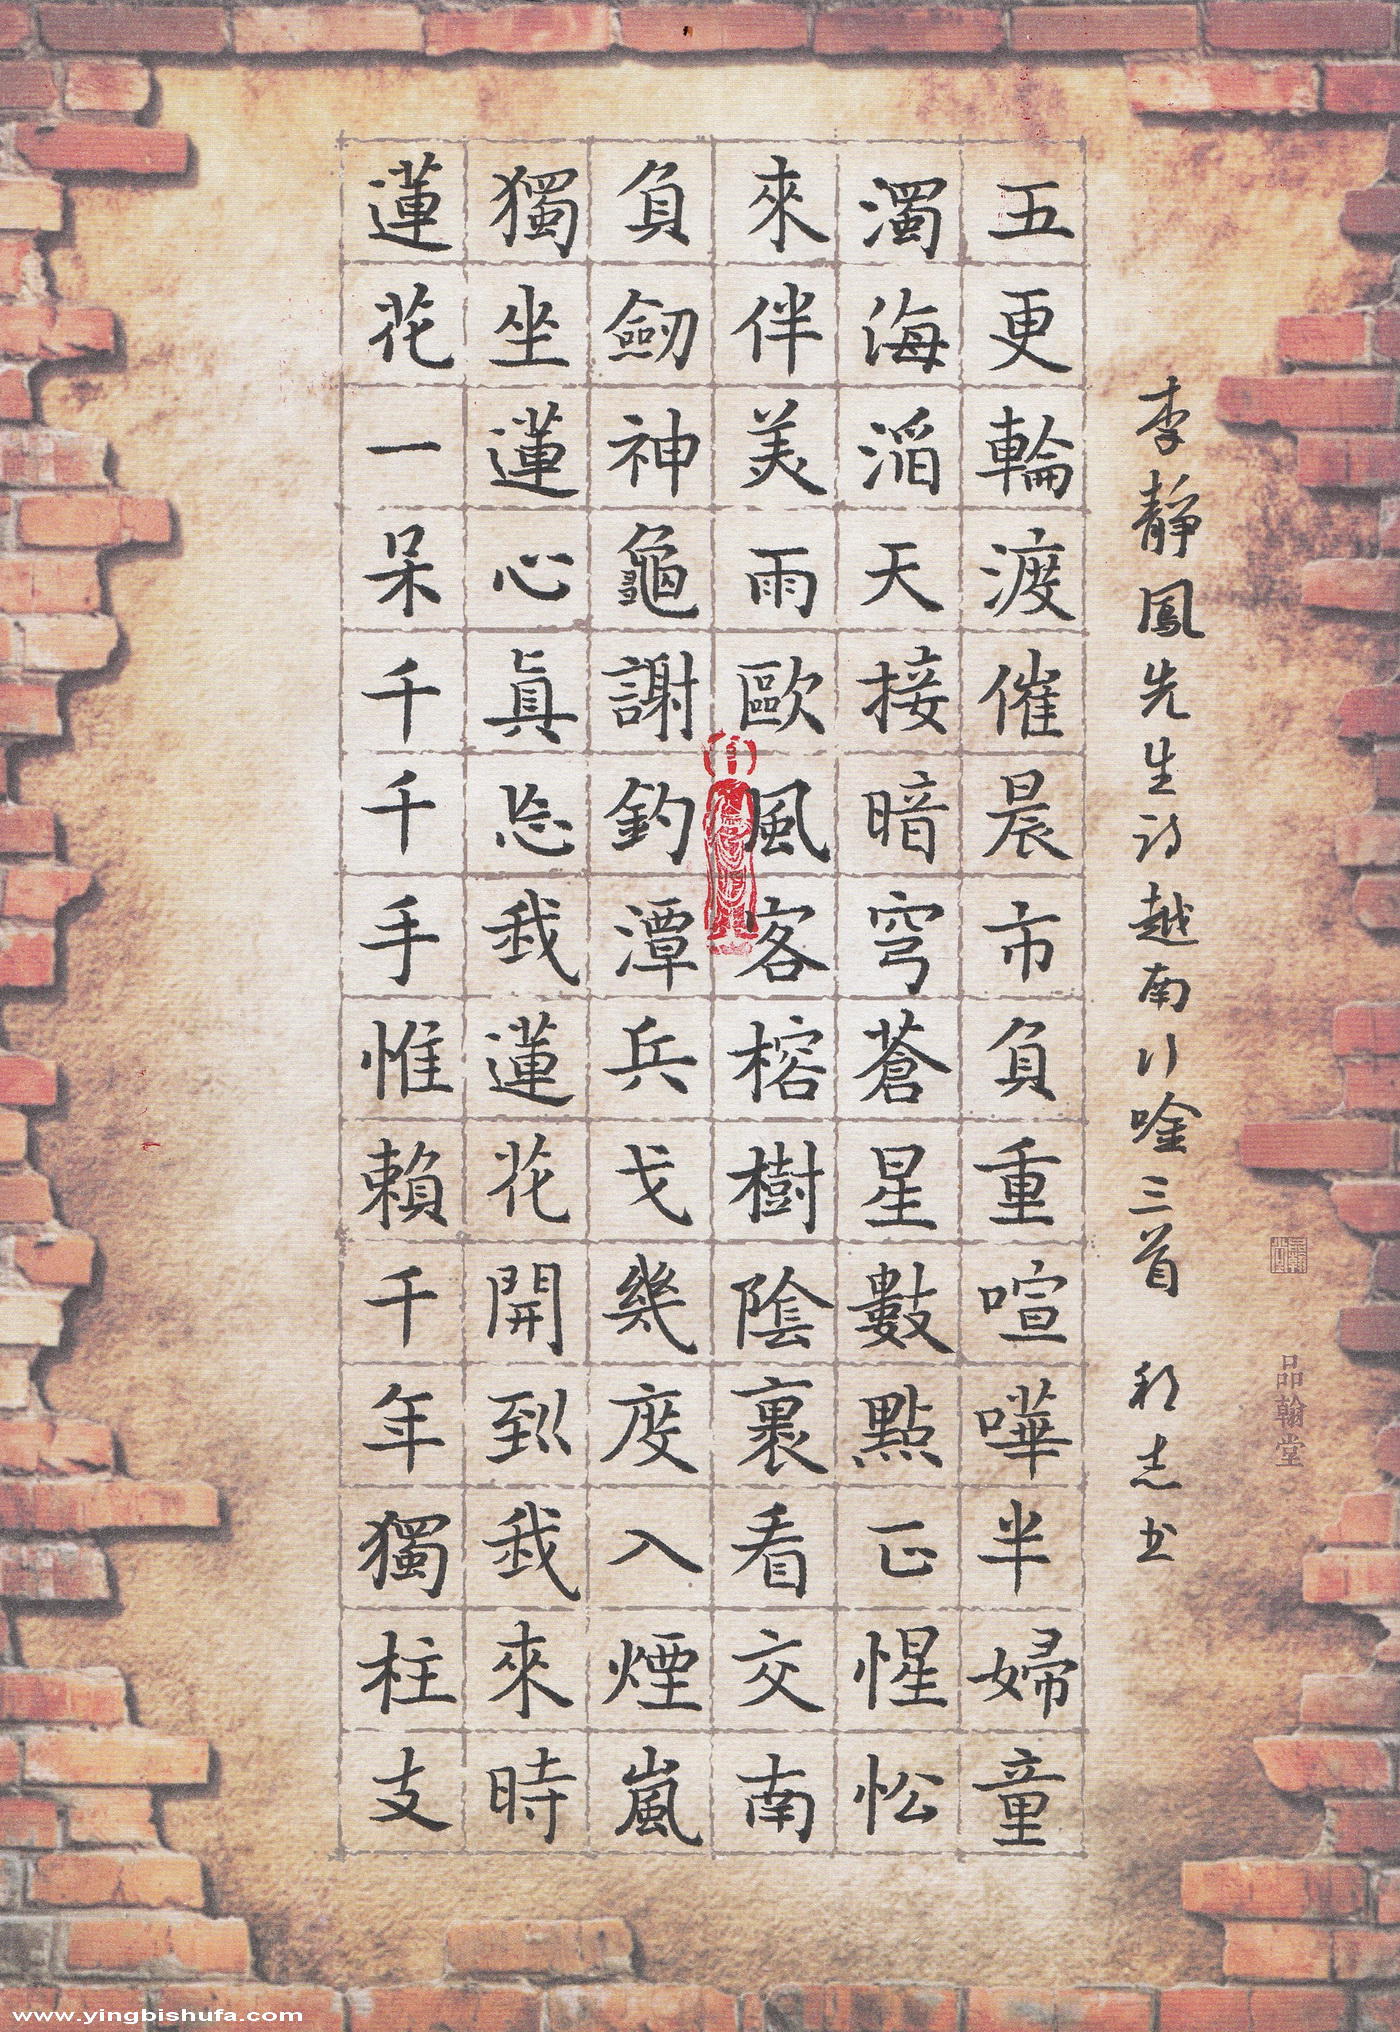 李靜鳳先生詩越南行唫三首 利志书
五更輪渡催晨市負重喧嘩半婦童
濁海滔天接暗穹蒼星數點正惺忪
來伴美雨歐風客榕樹陰裏看交南
負劒神龜謝釣潭兵戈幾度入煙嵐
獨坐蓮心眞忘我蓮花開到我來時
蓮花一呆千千手惟賴千年獨柱支
品翰堂
www.yingbishufa.com